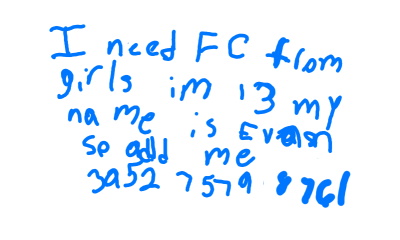 I need FC from
girls im 13 my
name is Evean
so add me
3a52 7579 8761